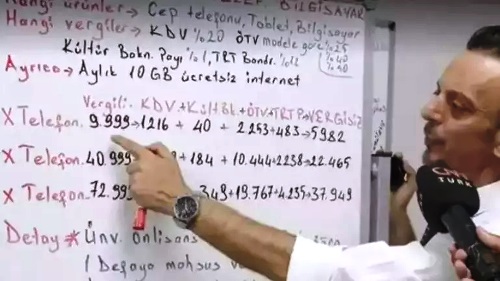 Hangi ürünler → Cep telefonu, Tablet, Bilgisayar
Hangi vergiler → KDV %20 ÖTV modele göre %25
%40
%50
Kültür Bakn. Payı %1, TRT Bandr. %12
Ayrıca → Aylık 10 GB ücretsiz internet
Vergili KDV + Kült Bk. + ÖTV + TRT P → VERGİSİZ
X Telefon. 9.999 → 1216 + 40 + 2.253 + 483 → 5982
X Telefon. 40.999 + 184 + 10.444 + 2238 → 22.465
X Telefon. 72.999 349 + 19.767 + 4.235 → 37.949
Detay * Üniv. önlisans
1 Defaya mahsus
TÜRK